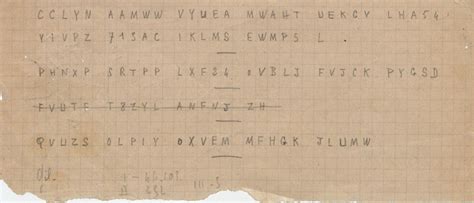 CCLYN AAMWW VYUEA MWAHT UEKCV LHA54
YIVPZ 713AC IKLMS EWMP5 L.
PHNXP SRTPP LXF34 OVBLJ FVJCK PYGSD
FVUTF T8ZYL ANFNJ ZH
QVUZS OLPIY OXVEM MFHGK JLUMW